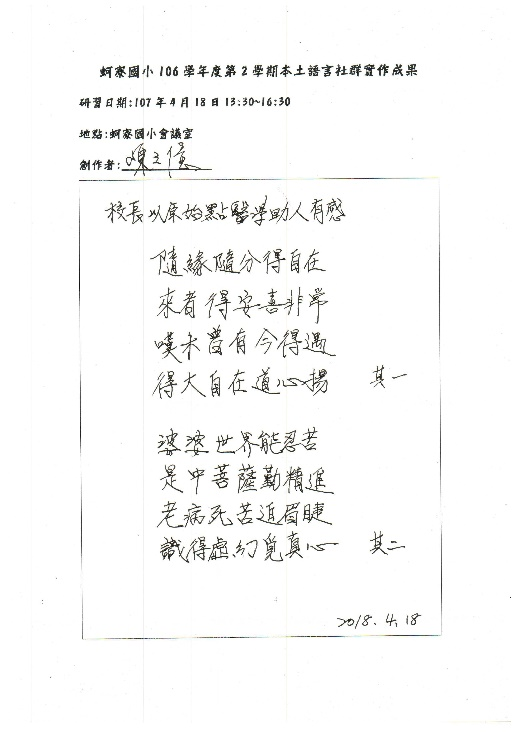 蚵寮國小106學年度第2學期本土語言社群實作成果
研習日期:107年4月18日13:30~16:30
地點:蚵寮國小會議室
創作者:
校長以原始點醫學助人有感
隨緣隨分得自在
來者得安喜非常
嘆未曾有今得遇
得大自在道心揚 其一
婆婆世界能忍苦
是中菩薩勤精進
老病死苦迫眉睫
識得虛幻覓真心 其二
2018.4.18